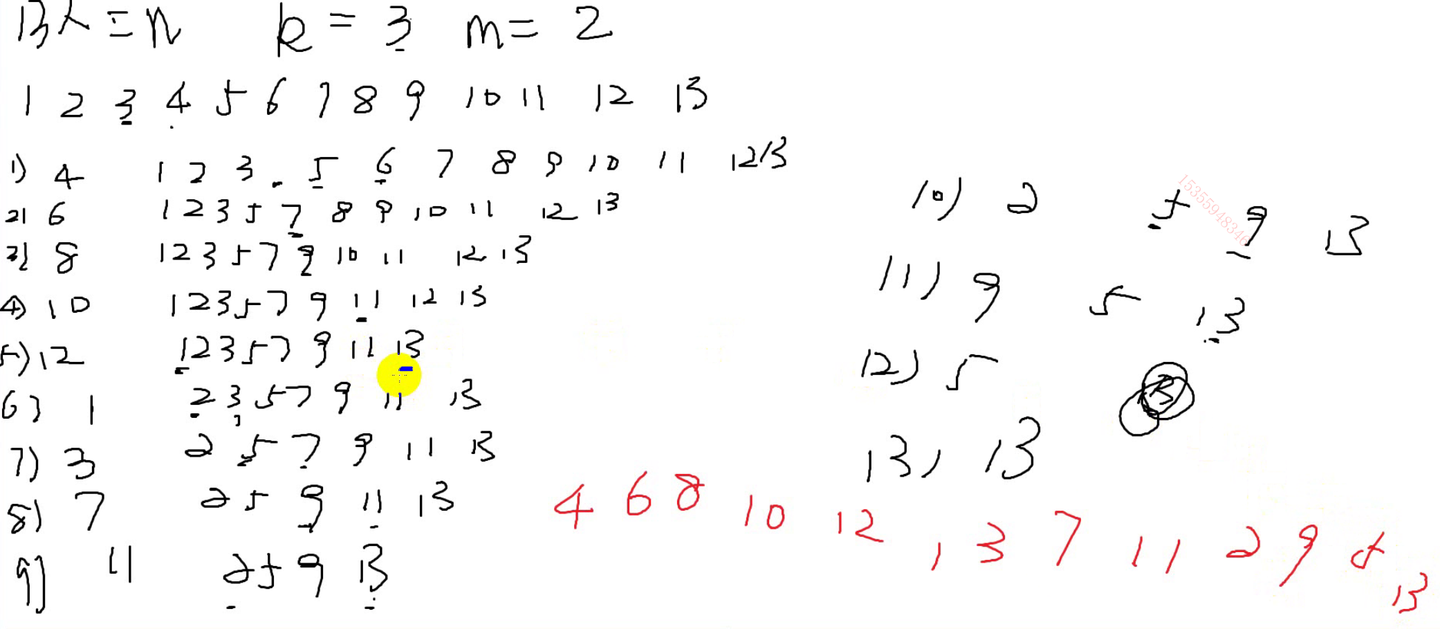 13人=n k=3 m=2
1 2 3 4 5 6 7 8 9 10 11 12 13
1) 4 1 2 3 . 5 6 7 8 9 10 11 12 13
2) 6 1 2 3 5 7 8 9 10 11 12 13
3) 8 1 2 3 5 7 9 10 11 12 13
4) 10 1 2 3 5 7 9 11 12 13
5) 12 1 2 3 5 7 9 11 13
6) 1 2 3 5 7 9 11 13
7) 3 2 5 7 9 11 13
8) 7 2 5 9 11 13
9) 11 2 5 9 13
10) 2 5 9 13
11) 9 5 13
12) 5 13
13) 13
4 6 8 10 12 1 3 7 11 2 9 5 13